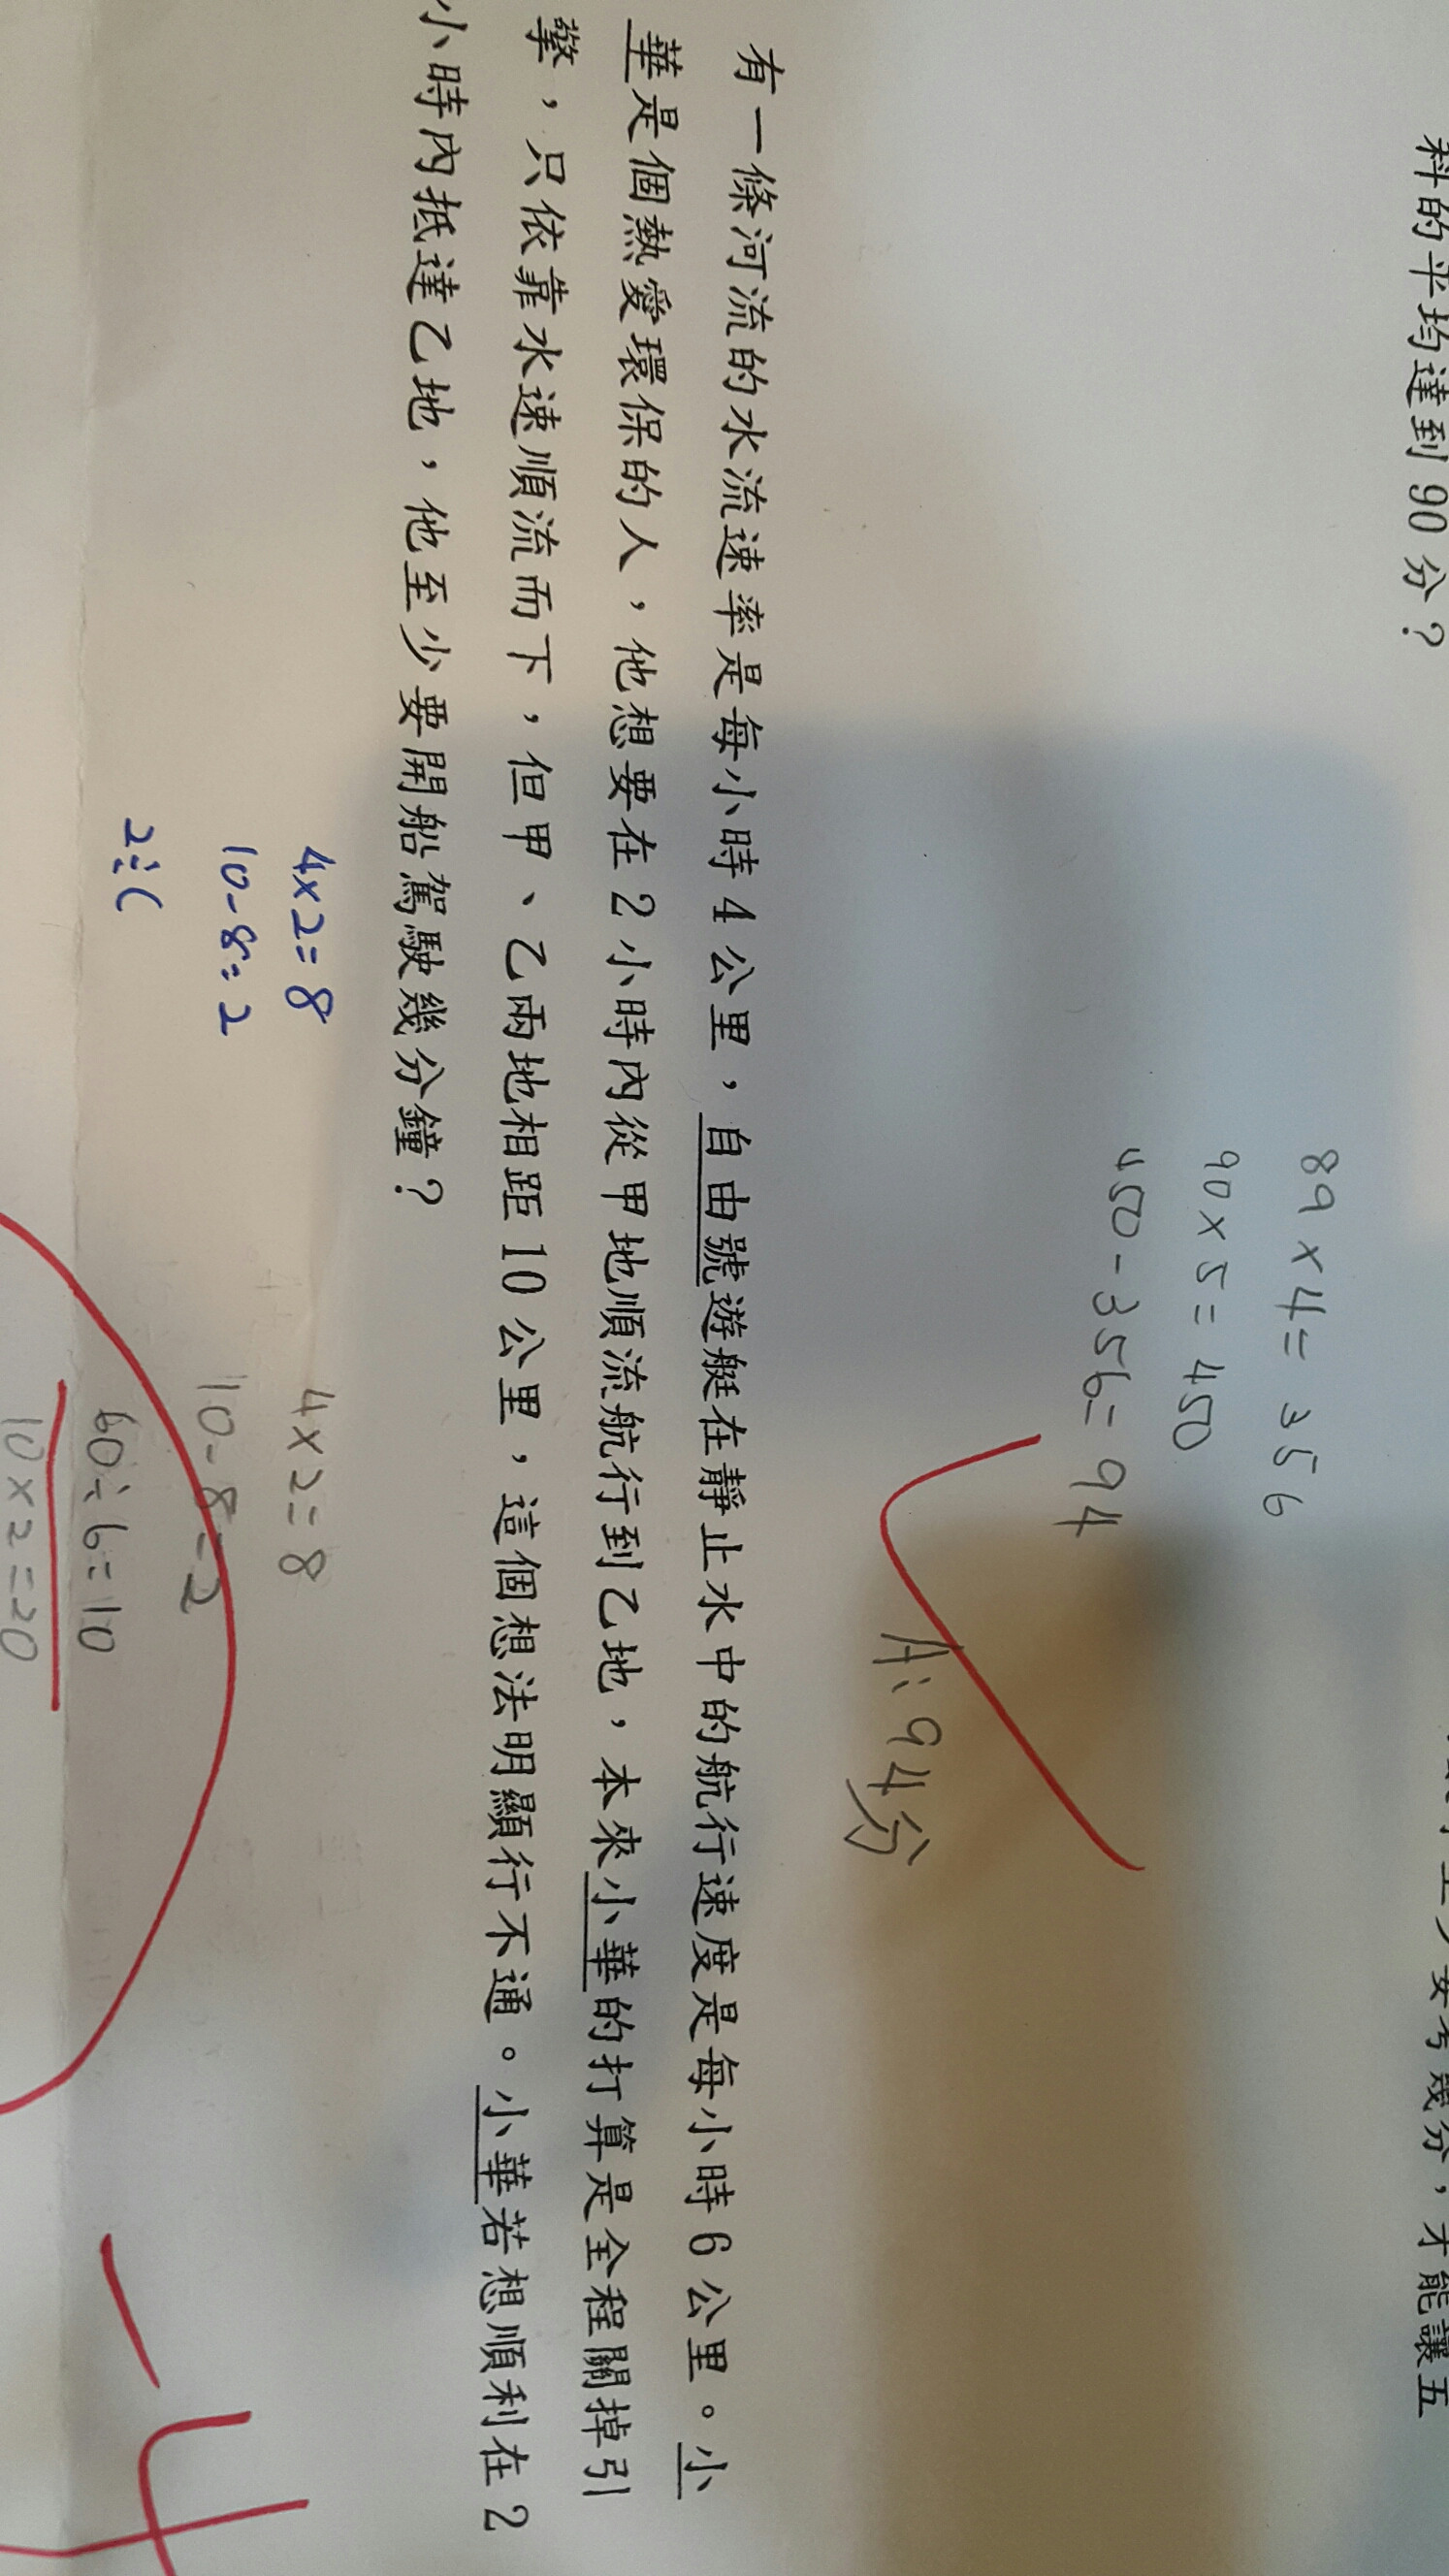 科的平均達到 90 分？
89×4=356
90×5=450
450-356=94
A:94分
有一條河流的水流速率是每小時 4 公里，自由號遊艇在靜止水中的航行速度是每小時 6 公里。小
華是個熱愛環保的人，他想要在 2 小時內從甲地順流航行到乙地，本來小華的打算是全程關掉引
擎，只依靠水速順流而下，但甲、乙兩地相距 10 公里，這個想法明顯行不通。小華若想順利在 2
小時內抵達乙地，他至少要開船駕駛幾分鐘？
4×2=8
10-8=2
2÷(
4×2=8
10-8=2
60÷6=10
10×2=20
-4